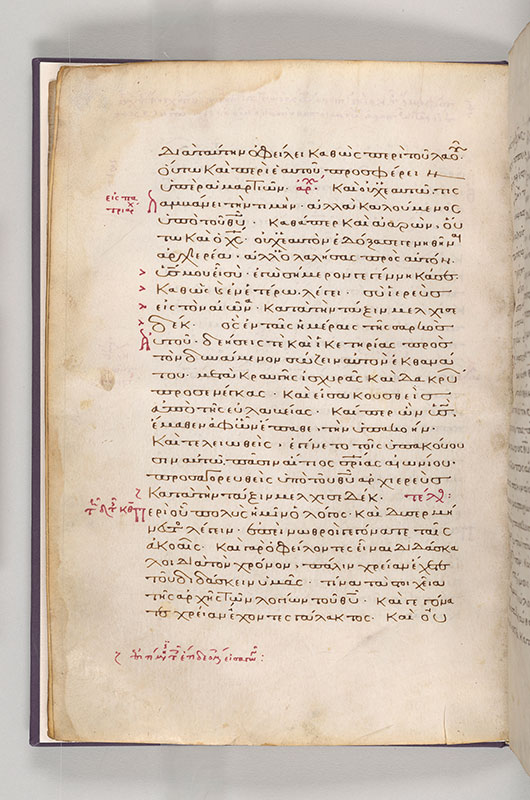 διὰ ταύτην ὀφείλει καθὼς περὶ τοῦ λαοῦ
οὕτω καὶ περὶ ἑαυτοῦ προσφέρειν
ὑπὲρ ἁμαρτιῶν. ἀρχ καὶ οὐχ ἑαυτῷ τις
εἰς πα
τριάρχ
λαμμάνει τὴν τιμὴν. ἀλλὰ καλούμενος
ὑπὸ τοῦ θυ. καθάπερ καὶ ἀαρών. οὕ
τω καὶ ὁ χς. οὐχ ἑαυτὸν ἐδόξασε γενηθῆναι
ἀρχιερέα. ἀλλ' ὁ λαλήσας πρὸς αὐτόν.
υς μου εἶ σύ. ἐγὼ σήμερον γεγέννηκά σε.
καθὼς καὶ ἐν ἑτέρω λέγει. σὺ ἱερεὺς
εἰς τὸν αἰῶνα κατὰ τὴν τάξιν μελχισε
δέκ. ὃς ἐν ταῖς ἡμέραις τῆς σαρκὸς
αὐτοῦ. δεήσεις τὲ καὶ ἱκετηρίας πρὸς
τὸν δυνάμενον σώζειν αὐτὸν ἐκ θανά
του. μετὰ κραυγῆς ἰσχυρᾶς καὶ δακρύ
προσενέγκας. καὶ εἰσακουσθεὶς
ἀπὸ τῆς εὐλαβείας. καίπερ ὢν υς.
ἔμαθεν ἀφ' ὧν ἔπαθε. τὴν ὑπακοήν.
καὶ τελειωθεὶς. ἐγένετο τοῖς ὑπακούου
σιν αὐτῶ. πᾶσιν αἴτιος σριας αἰωνίου.
προσαγορευθεὶς ὑπὸ τοῦ θυ ἀρχιερεὺς
κατὰ τὴν τάξιν μελχισεδέκ. τελ:
περὶ οὗ πολὺς ἡμῖν ὁ λόγος. καὶ δυσερμή
νευτος λέγειν. ἐπεὶ νωθροὶ γεγόνατε ταῖς
ἀκοαῖς. καὶ γὰρ ὀφείλοντες εἶναι διδάσκα
λοι διὰ τὸν χρόνον. πάλιν χρείαν ἔχετε
τοῦ διδάσκειν ὑμᾶς. τίνα τὰ στοιχεῖα
τῆς ἀρχῆς τῶν λογίων τοῦ θυ. καὶ γεγόνα
τε χρείαν ἔχοντες γάλακτος. καὶ οὐ